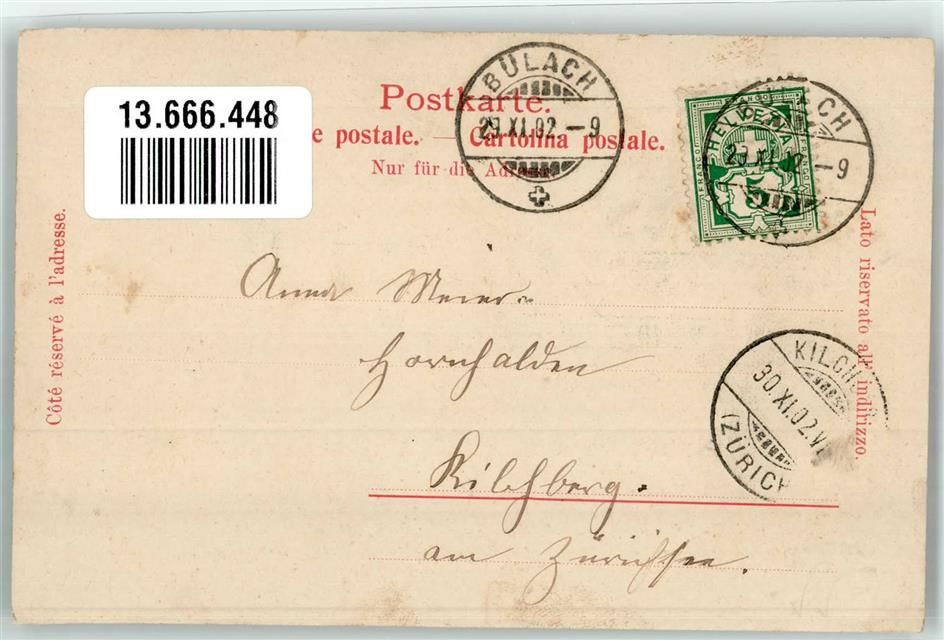 13.666.448
BÜLACH
29.XI.02 –9
Postkarte.
e postale. — Cartolina postale.
Nur für die Adresse
HELVETIA
FRANCO
5
29 XI 02 –9
Côté réservé à l'adresse.
Lato riservato all' indirizzo.
Anna Meier.
Hornhalden
Kilchberg.
am Zürichsee.
KILCHB
30.XI.02.V
(ZÜRICH